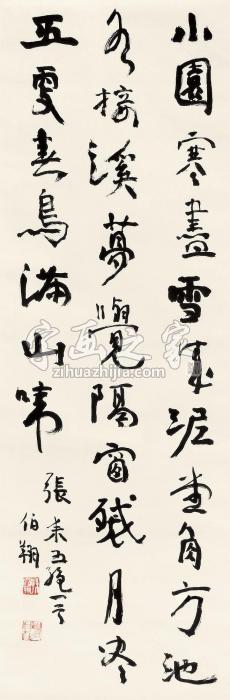 小園寒盡雪成泥堂角方池
水接溪夢覺隔窗殘月尽
五更春鳥滿山啼
張耒五絕一首
伯翔
字画之家
zihuazhijia.com